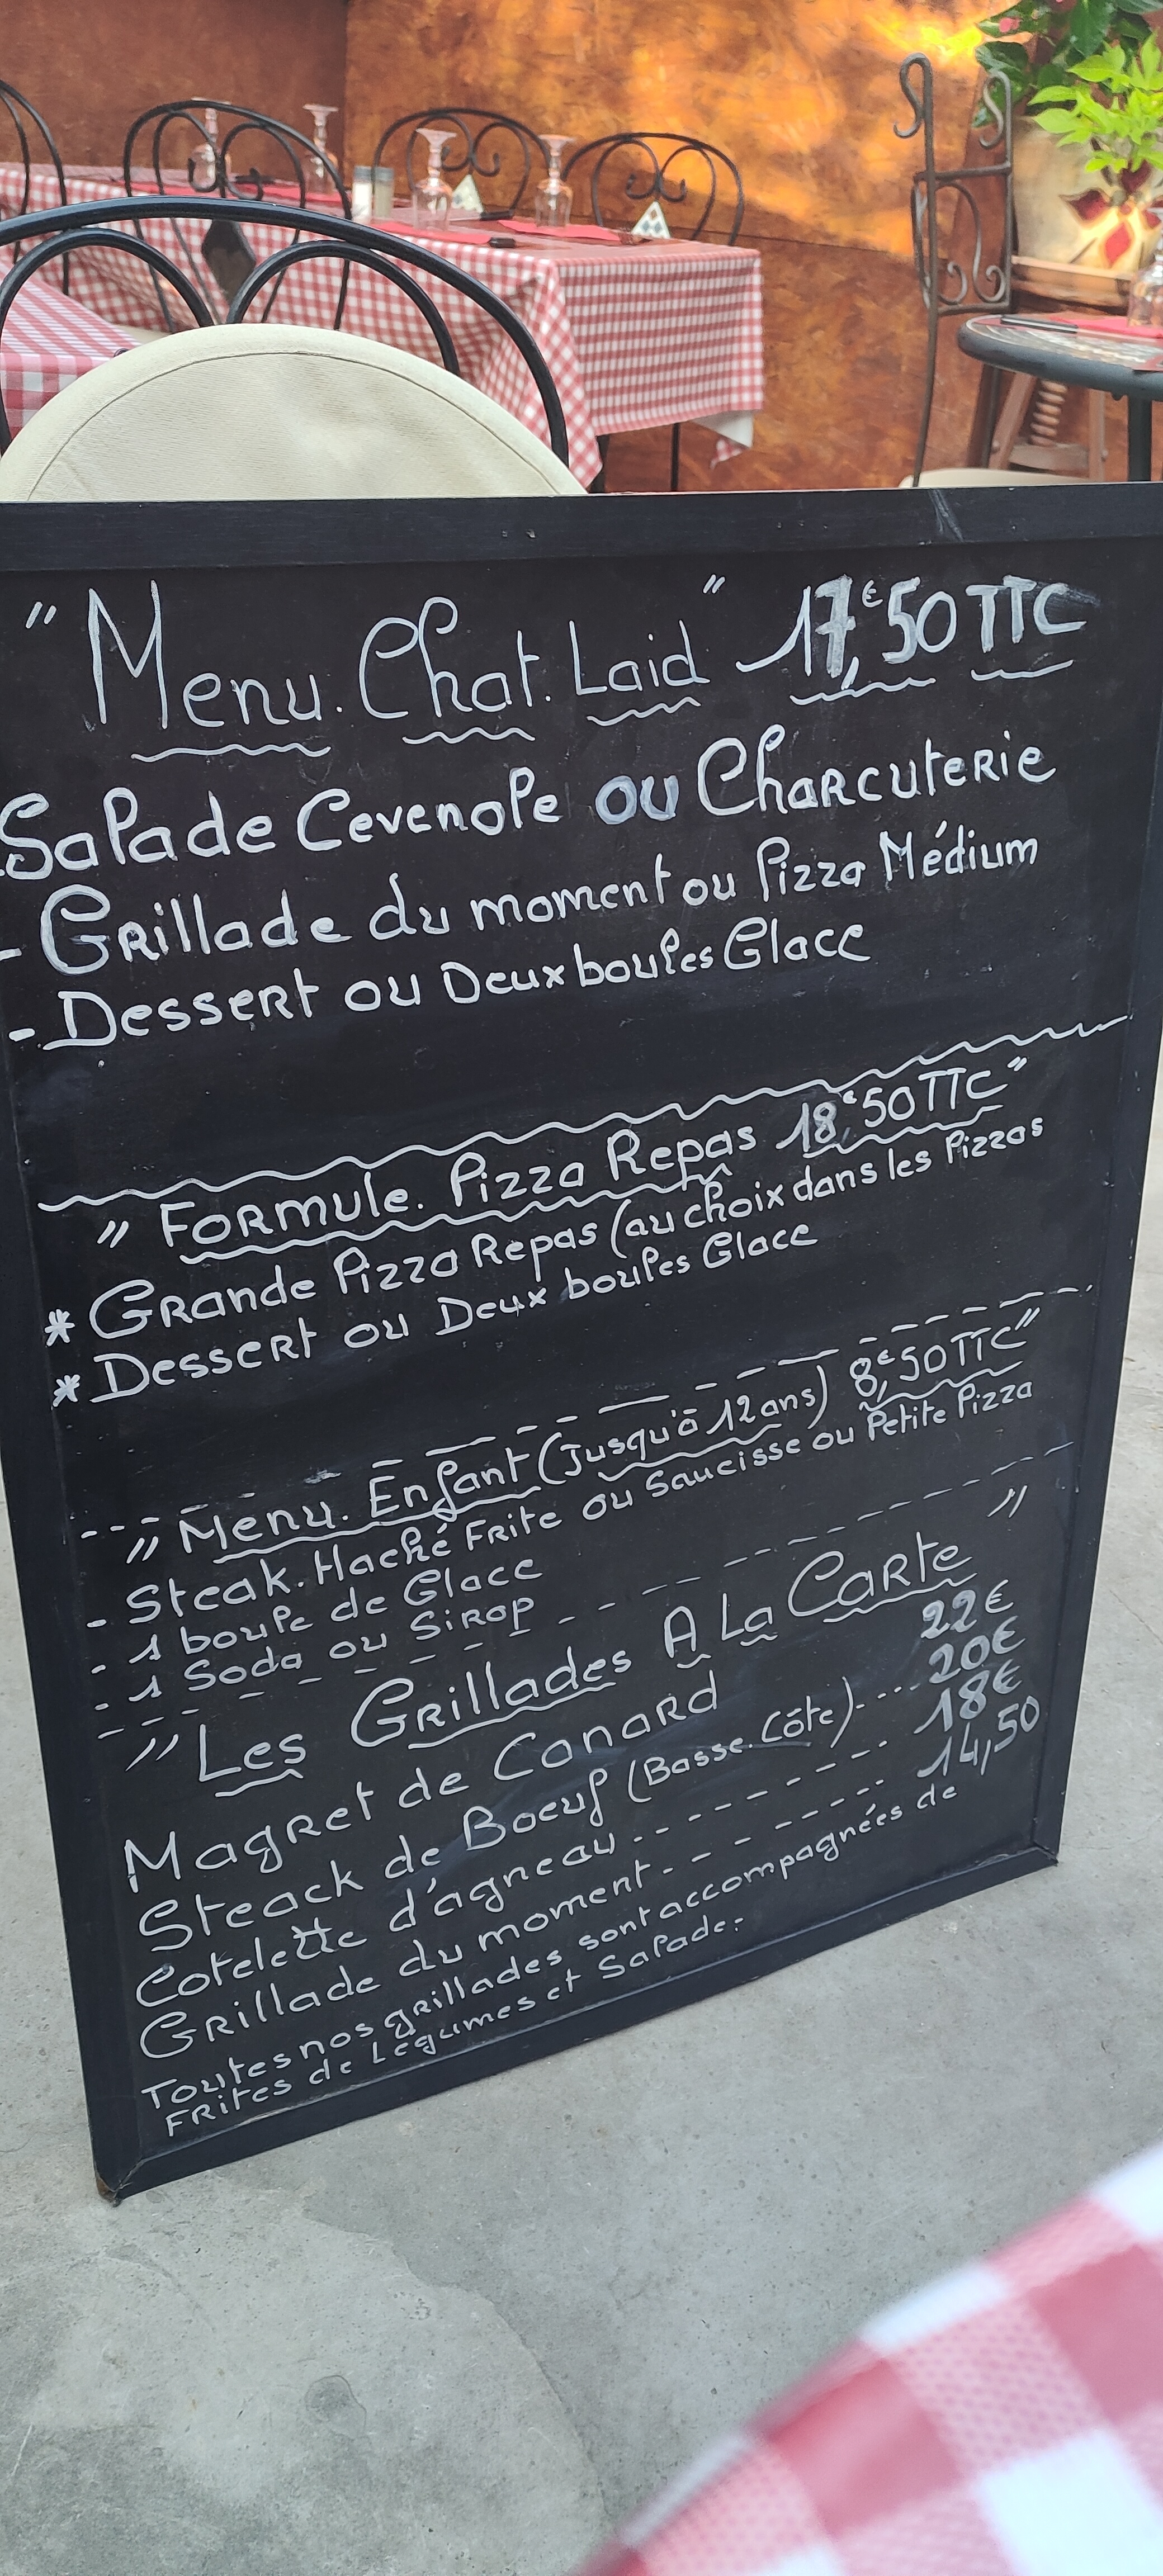 "Menu. Chat. Laid" 17,€50 TTC
Salade Cevenole ou Charcuterie
- Grillade du moment ou Pizza Médium
- Dessert ou Deux boules Glace
"Formule. Pizza Repas 18,€50 TTC"
* Grande Pizza Repas (au choix dans les Pizzas
* Dessert ou Deux boules Glace
"Menu. Enfant (Jusqu'à 12 ans) 8,€50 TTC"
- Steak. Haché Frite ou Saucisse ou Petite Pizza
- 1 boule de Glace
- 1 Soda ou Sirop
"Les Grillades A La Carte"
Magret de Canard 22€
Steack de Boeuf (Basse. Côte)---- 20€
Cotelette d'agneau-------- 18€
Grillade du moment-------- 14,50
Toutes nos grillades sont accompagnées de
Frites de Légumes et Salade.